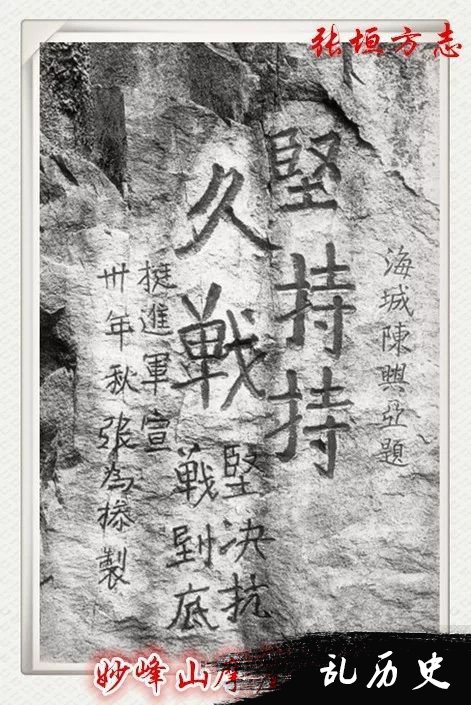 张垣方志
海城陳興亞題
堅持持
久戰
堅决抗
戰到底
挺進軍宣
卅年秋張為製
妙峰山摩
乱历史